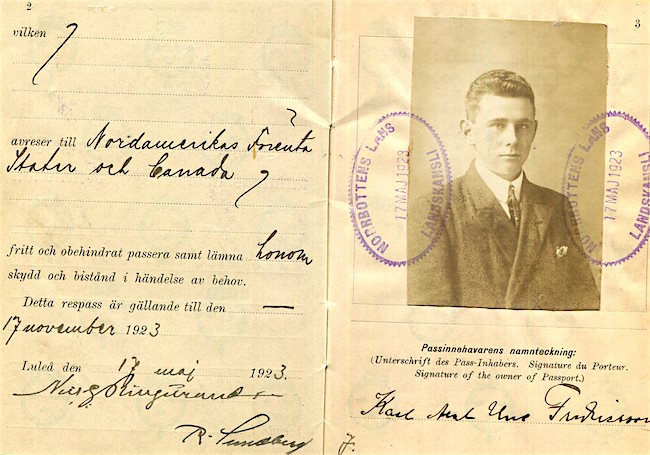 2
vilken
avreser till Nordamerikas Förenta
Stater och Canada
fritt och obehindrat passera samt lämna honom
skydd och bistånd i händelse av behov.
Detta respass är gällande till den
17 november 1923
Luleå den 17 maj 1923.
R. Sundberg
3
NORRBOTTENS LÄNS
17 MAJ 1923
LANDSKANSLI
NORRBOTTENS LÄNS
17 MAJ 1923
LANDSKANSLI
Passinnehavarens namnteckning:
(Unterschrift des Pass-Inhabers. Signature du Porteur.
Signature of the owner of Passport.)
Karl Axel Uno Fredriksson